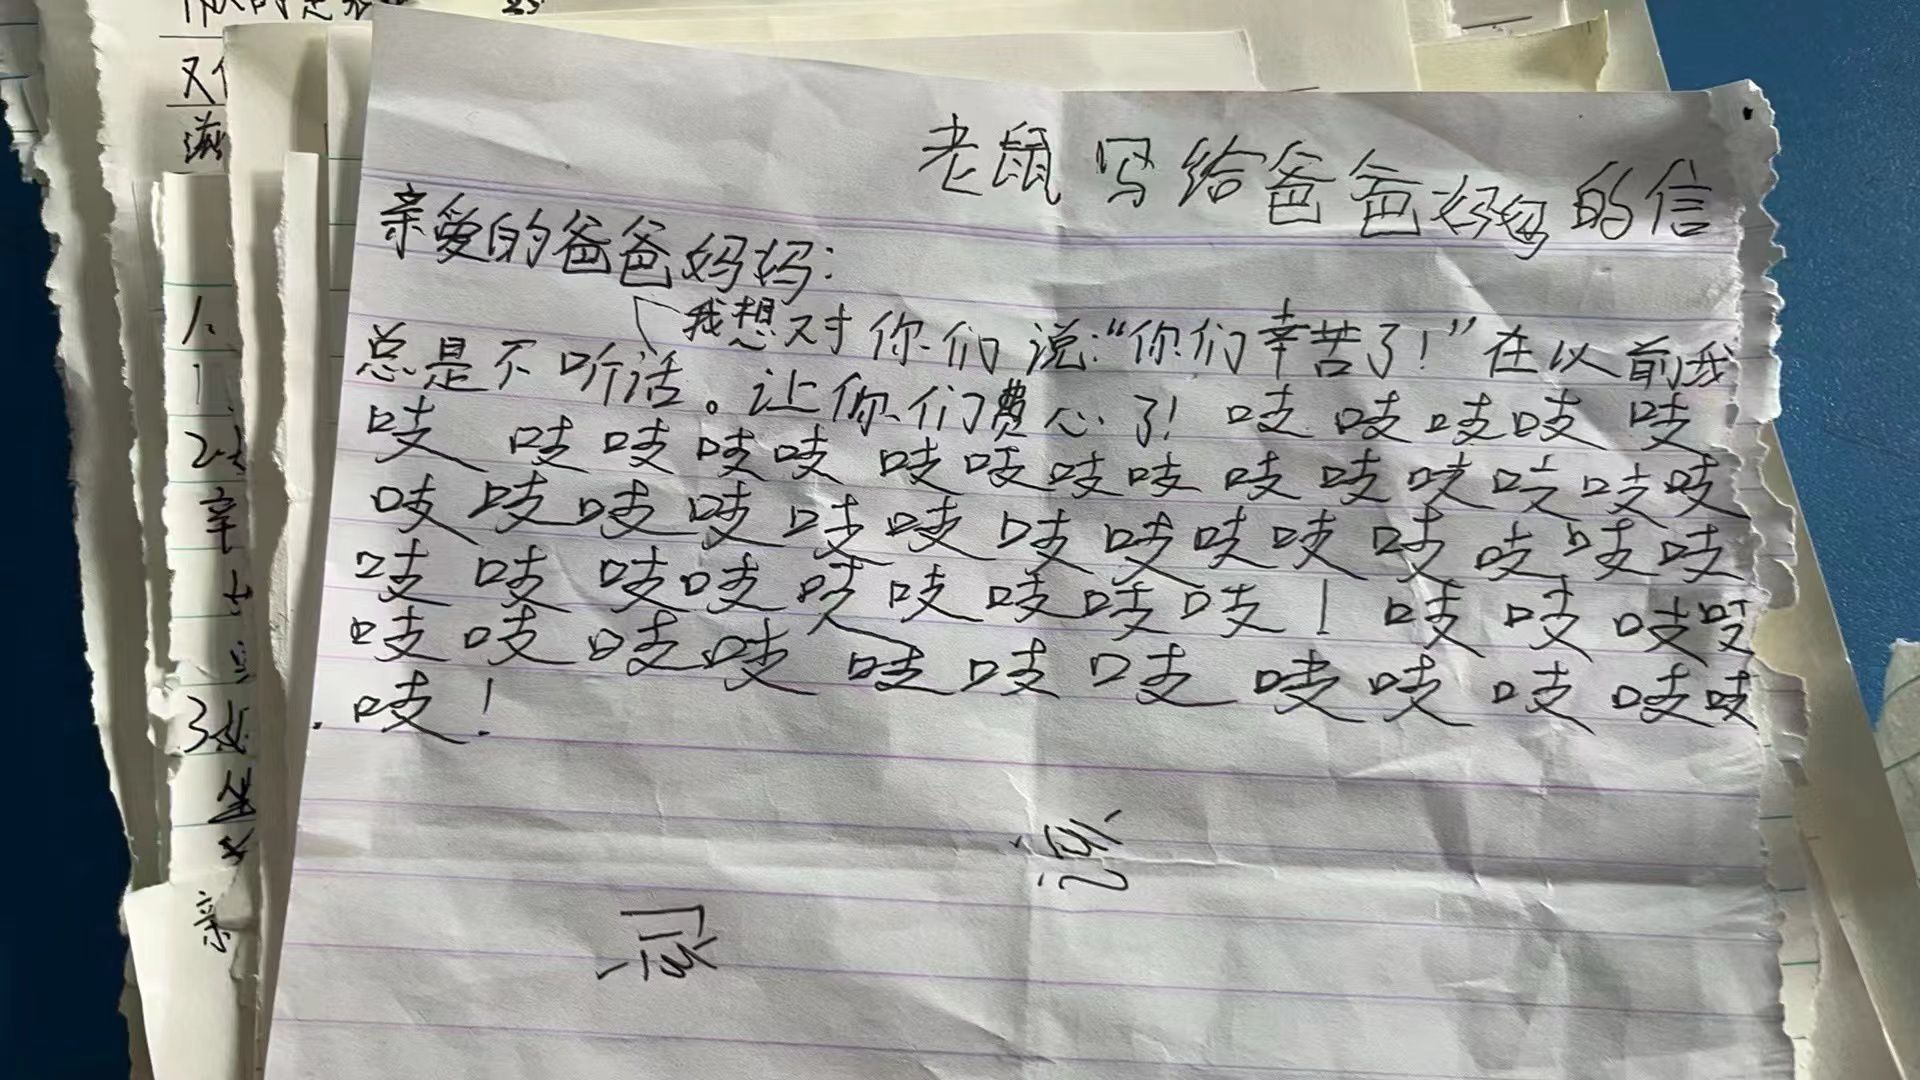 老鼠写给爸爸妈妈的信
亲爱的爸爸妈妈：
我想对你们说：“你们辛苦了！”在以前我
总是不听话。让你们费心了！吱吱吱吱吱
吱吱吱吱吱吱吱吱吱吱吱吱吱吱吱
吱吱吱吱吱吱吱吱吱吱吱吱吱吱
吱吱吱吱吱吱吱吱吱！吱吱吱吱
吱吱吱吱吱吱吱吱吱吱吱吱
吱！
又
1.
2.
辛
3.
亲